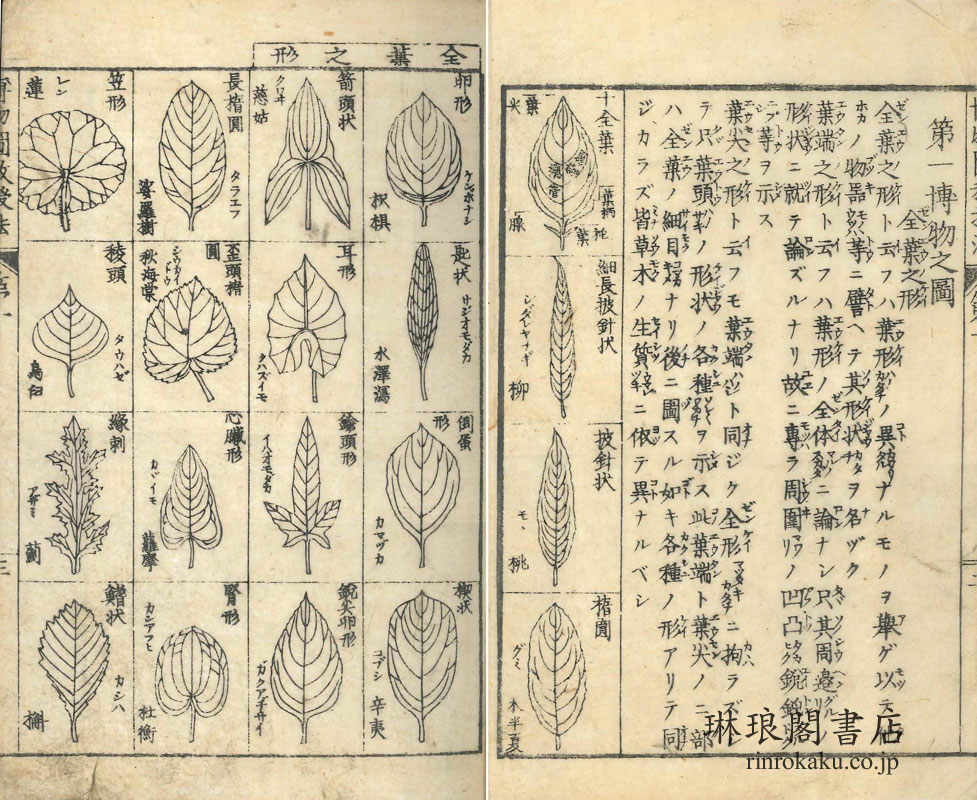 第一博物之圖
全葉之形
全葉ノ形ト云フハ葉形ノ異ナルモノヲ擧ゲ以テ他
ノ物器等ニ譬ヘテ其形状ヲ名ヅク
葉端之形ト云フハ葉形ノ全体ニ論ナシ只其周邉ノ
形状ニ就テ論ズルナリ故ニ專ラ周圍ノ凹凸鋭鈍
等ヲ示ス
葉尖之形ト云フモ葉端ト同ジク全形ニ拘ラズシ
テ只葉頭ノ形状ノ各種ヲ示ス此葉端ト葉尖ノ二部
ハ全葉ノ細目ナリ後ニ圖スル如キ各種ノ形アリテ同
ジカラズ皆草木ノ生質ニ依テ異ナルベシ
全葉
葉尖
葉柄
托葉
脈
細長披針状
シダレヤナギ
柳
披針状
モヽ
桃
楕圓
グミ
木半夏
琳琅閣書店
rinrokaku.co.jp
全葉之形
卵形
ケンポナシ
枳椇
匙状
サジオモダカ
水澤瀉
倒蛋形
カマヅカ
楔状
コブシ
辛夷
箭頭状
クロヰ
慈姑
耳形
タハズイモ
鎗頭形
イハオモダカ
鋭尖卵形
ガクアヂサイ
長楕圓
タラエフ
娑羅樹
歪頭楕圓
シウカイドウ
秋海棠
心臓形
カヾイモ
蘿摩
腎形
カンアフヒ
杜衡
笠形
レン
蓮
稜頭
タウハゼ
烏臼
縁刺
アザミ
薊
鰭状
カシハ
槲